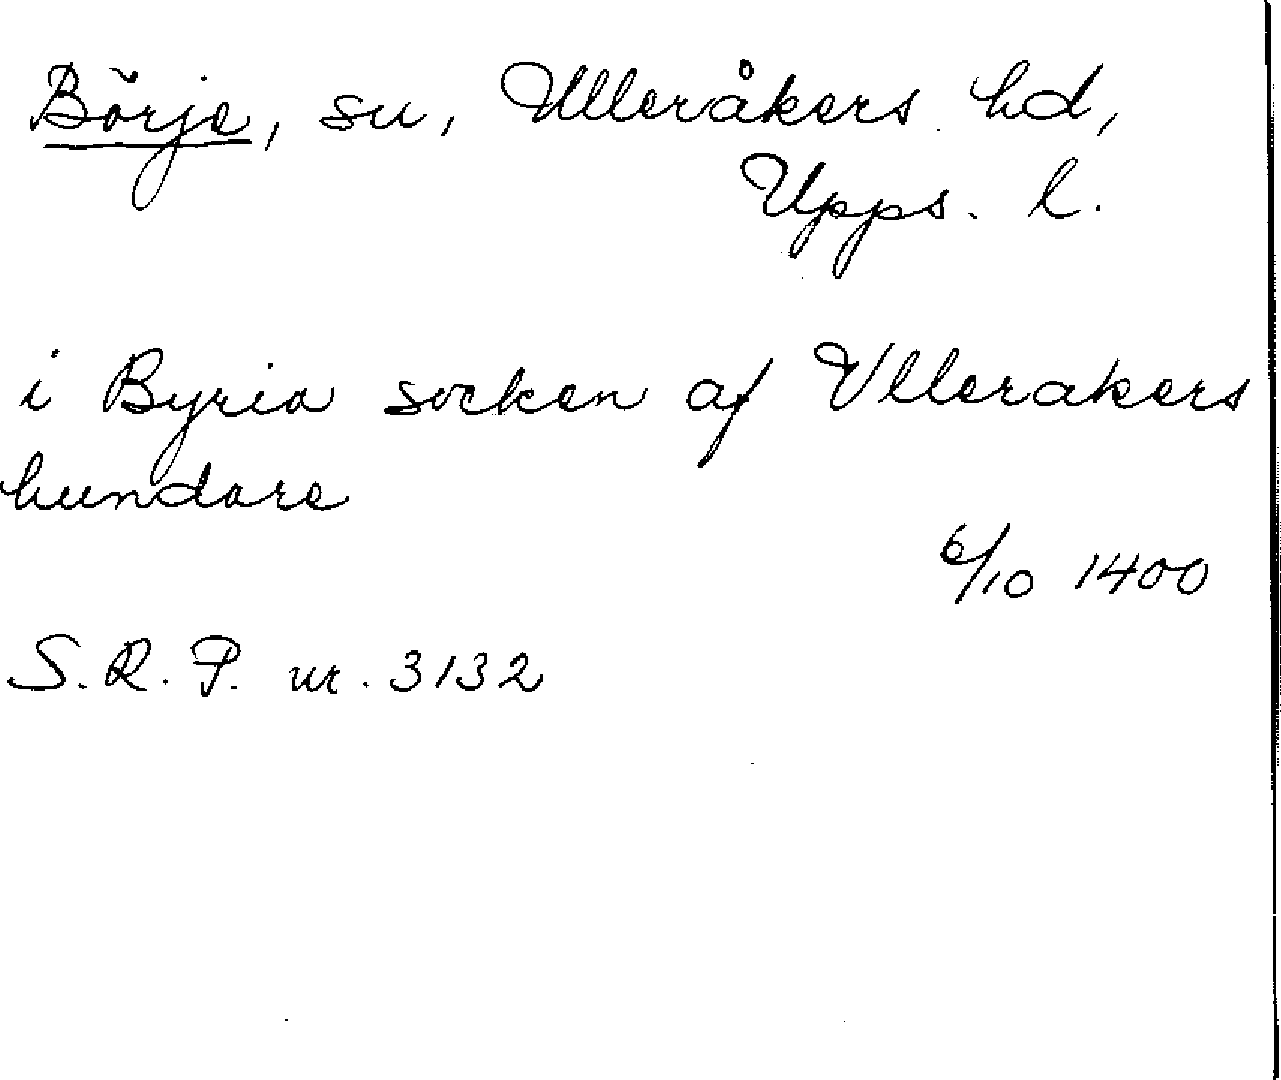 Börje, sn, Ulleråkers hd,
Upps. l.
i Byria socken af Vllerakers
hundare
6/10 1400
S.R.P. nr. 3132